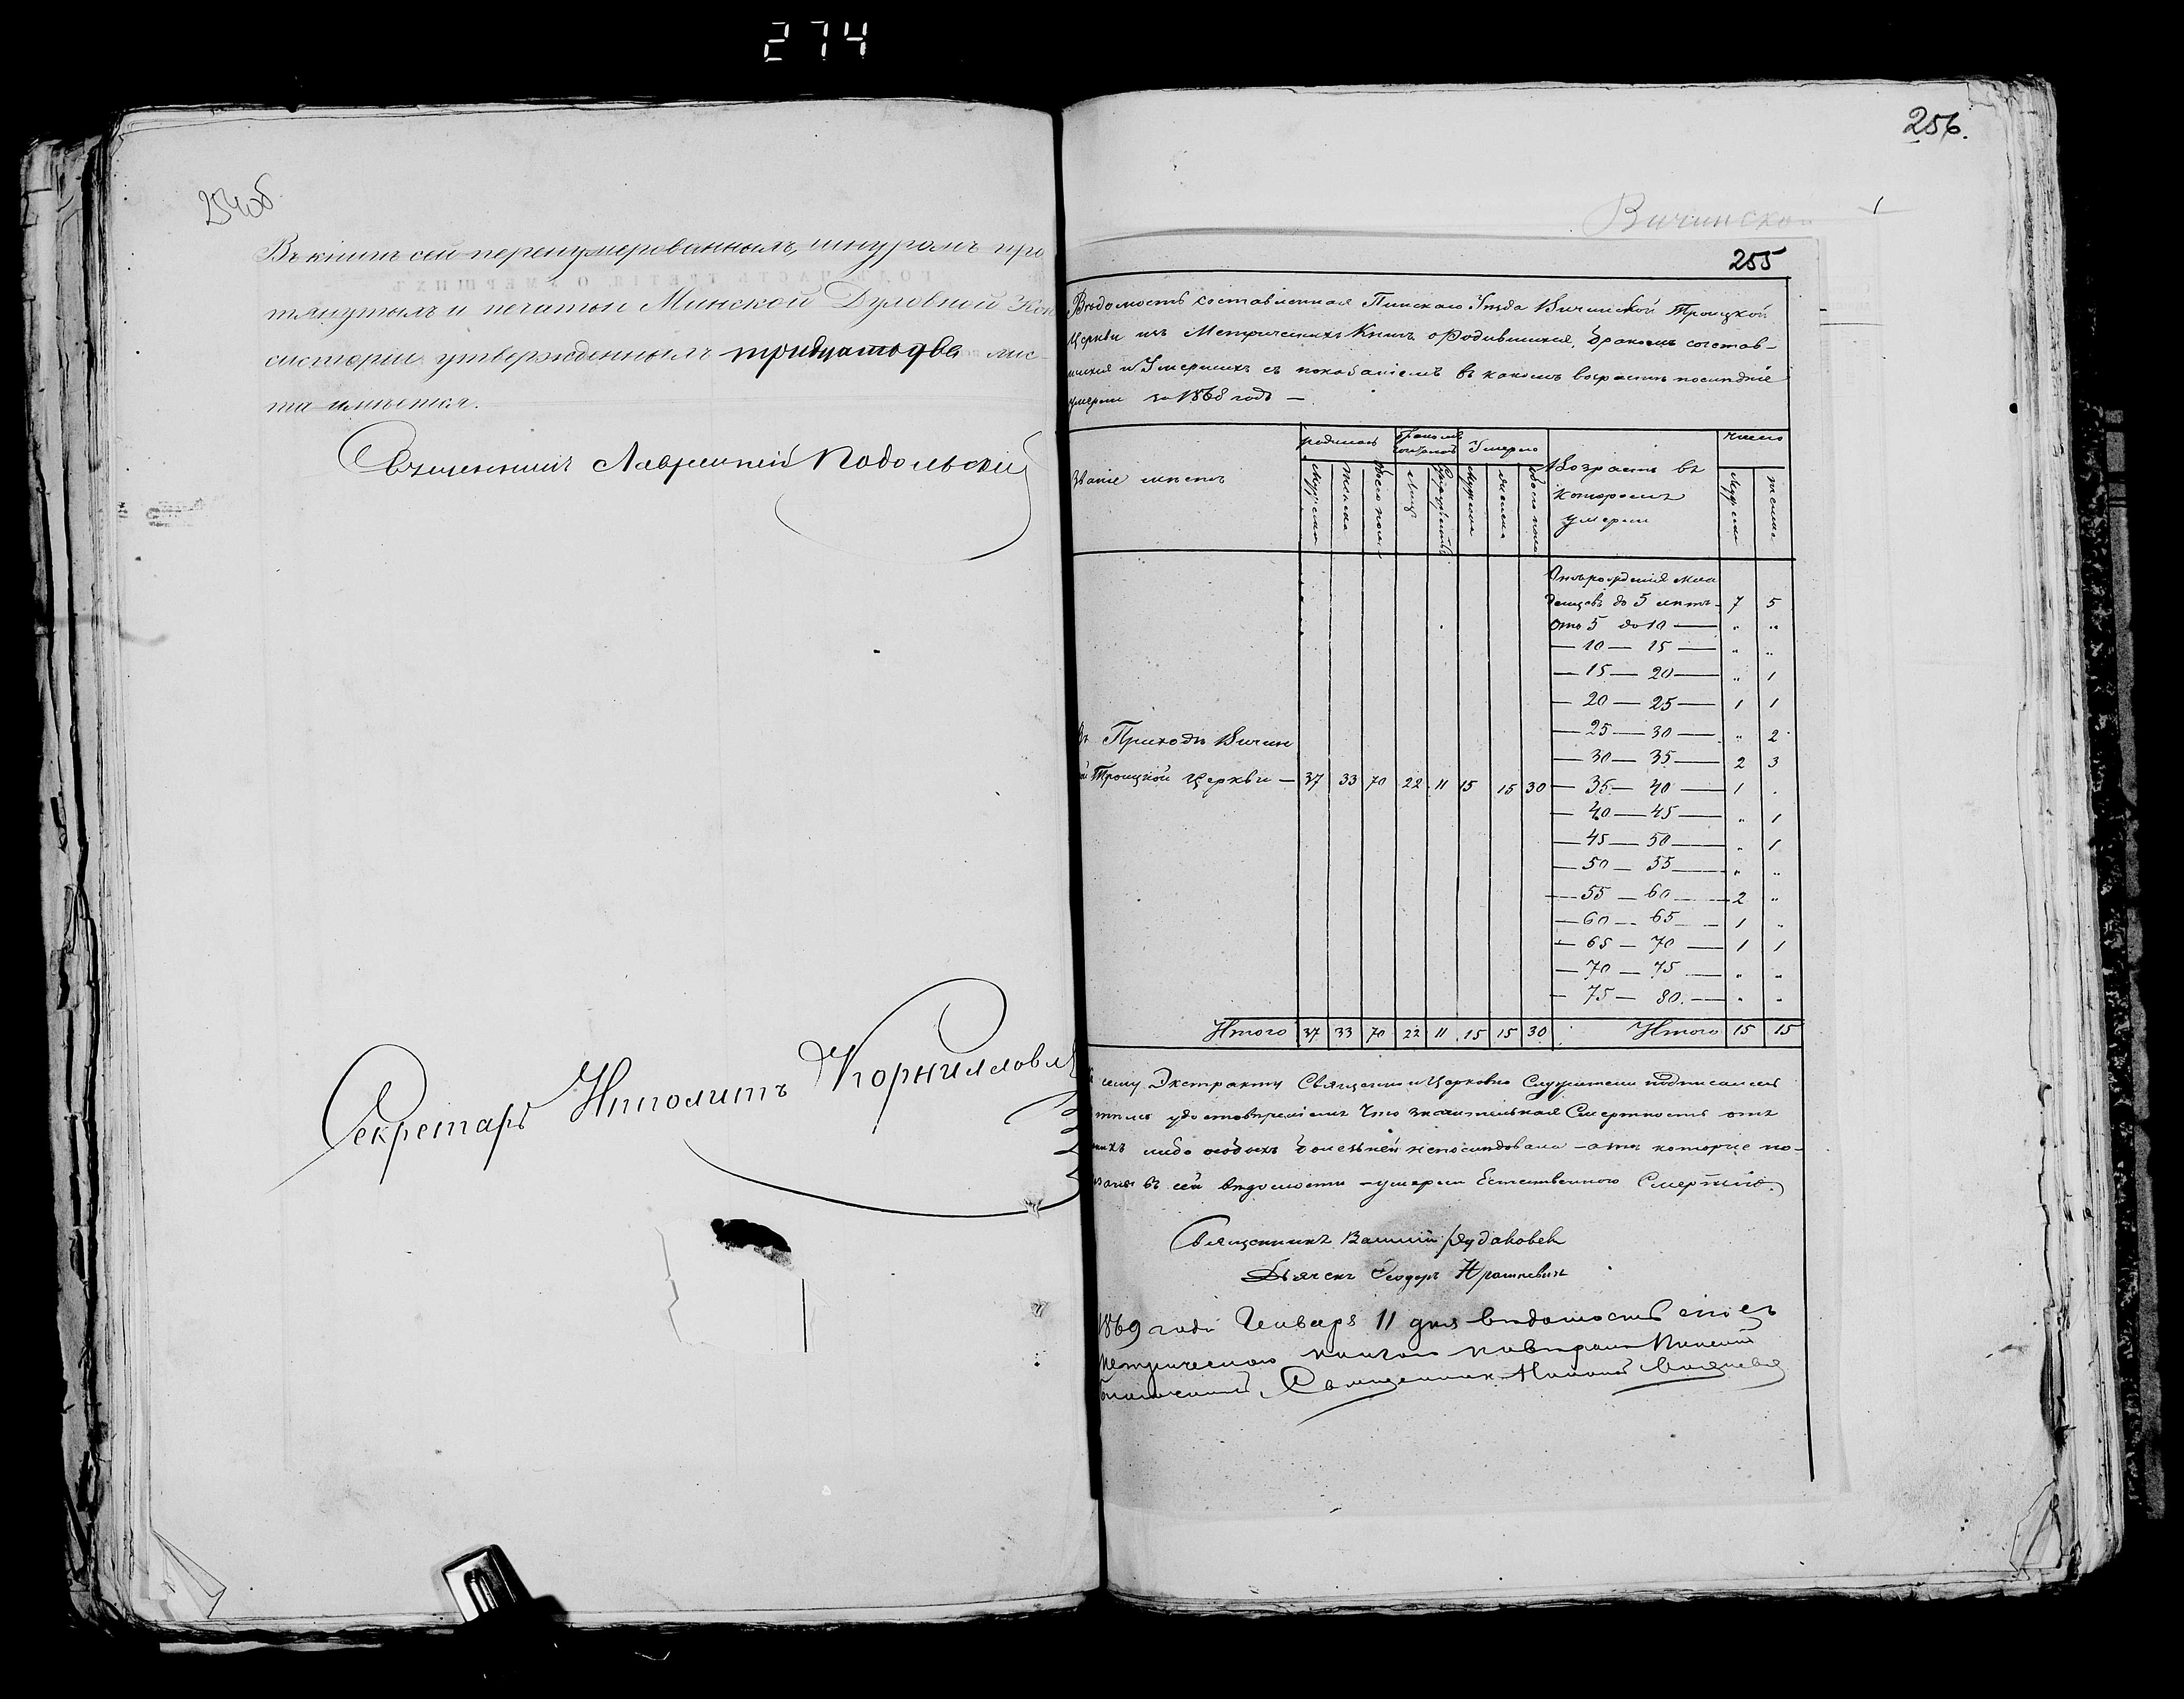 274
254об
Въ книгѣ сей перенумерованныхъ, шнуромъ про
тянутыхъ и печатью Минской Духовной Кон
систоріи утвержденныхъ тридцать два лис-
та имѣется.
Священникъ Лаврентій Подольскій
Секретарь Ипполитъ Корниловъ
256.
Вичинской
1
255
Вѣдомость составленная Пинскаго Уѣзда Вичинской Троицкой
Церкви изъ Метрическихъ Книгъ о Родившихся, Бракомъ сочетав-
шихся и Умершихъ съ показаніемъ въ какомъ возрастѣ послѣдніе
умерли за 1868 годъ —
родилось бракомъ Умерло Возрастъ въ которомъ умерли число
Званіе мѣстъ
Мужеска Женска Обоего пола Лицъ Мужеска Женска Обоего пола Мужеска Женска
Отъ рожденія мла
денцевъ до 5 лѣтъ — 7 5
Отъ 5 до 10 — " "
— 10 — 15 — " "
— 15 — 20 — " 1
— 20 — 25 — 1 1
— 25 — 30 — " 2
— 30 — 35 — 2 3
Въ Приходѣ Вичин
ой Троицкой Церкви — 37 33 70 22 11 15 15 30 — 35 — 40 — 1 .
— 40 — 45 — " 1
— 45 — 50 — " 1
— 50 — 55 — " "
— 55 — 60 — 2 "
— 60 — 65 — 1 "
— 65 — 70 — 1 1
— 70 — 75 — " "
— 75 — 80. — " "
Итого 37 33 70 22 11 15 15 30 Итого 15 15
сему Экстракту Священно и Церковно Служители подписались
удостовѣреніемъ что значительная Смертность отъ
какихъ либо особыхъ болѣзней непослѣдовала — а тѣ которые по-
казаны въ сей вѣдомости — умерли Естественною Смертію.
Священникъ
Дьячекъ Ѳеодоръ
1869 года Января 11 дня вѣдомость сію съ
метрическою книгою
Благочинный Священникъ